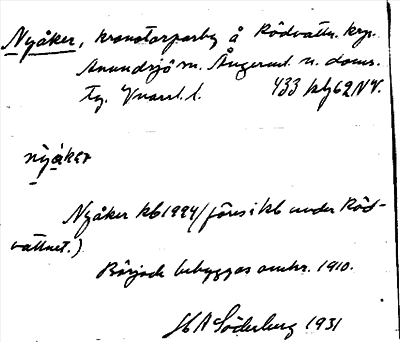 Nyåker, kronotorparby å Rödvattn. krp.
Anundsjö sn. Ångerml. n. doms.
Fg. Vnorrl. l. 433 hfj62NV.
nỳåkər
Nyåker kb1924 (föres i kb under Röd-
vattnet.)
Började bebyggas omkr. 1910.
H A Söderberg 1931